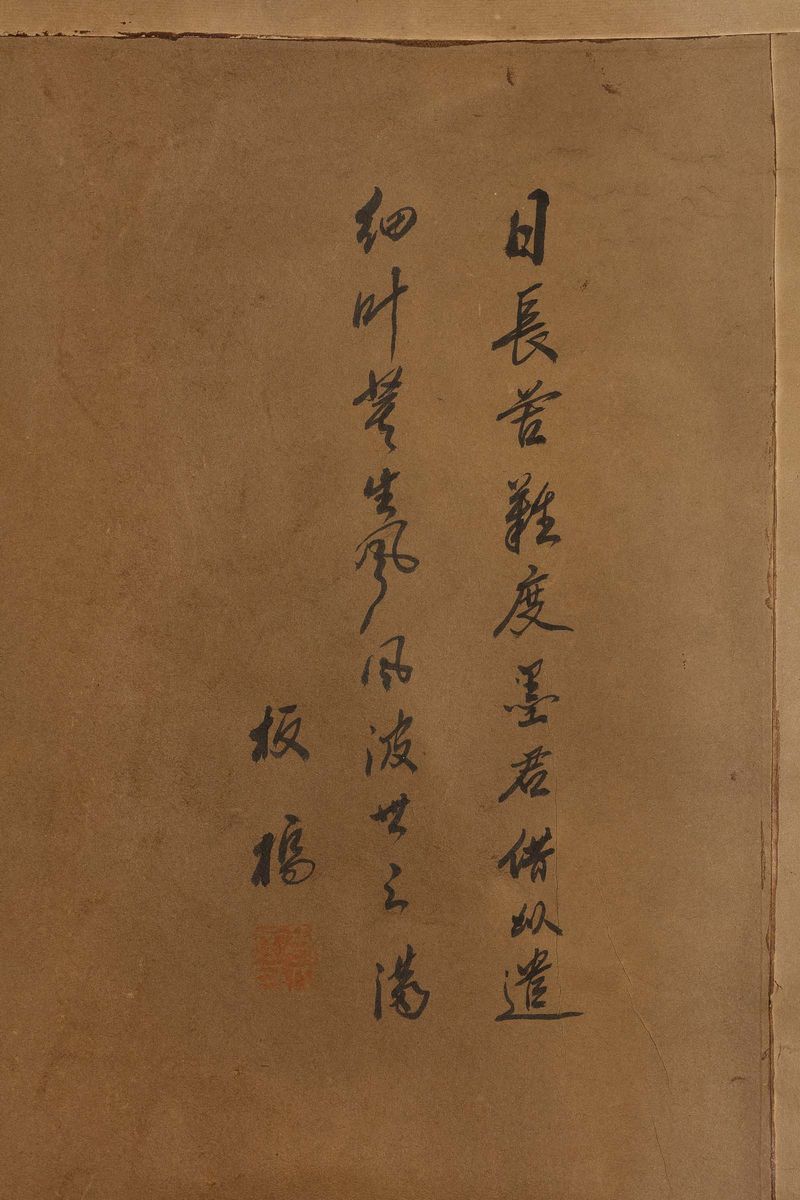 日長苦難度墨君借以遣
細叶生風風波世之滿
板橋